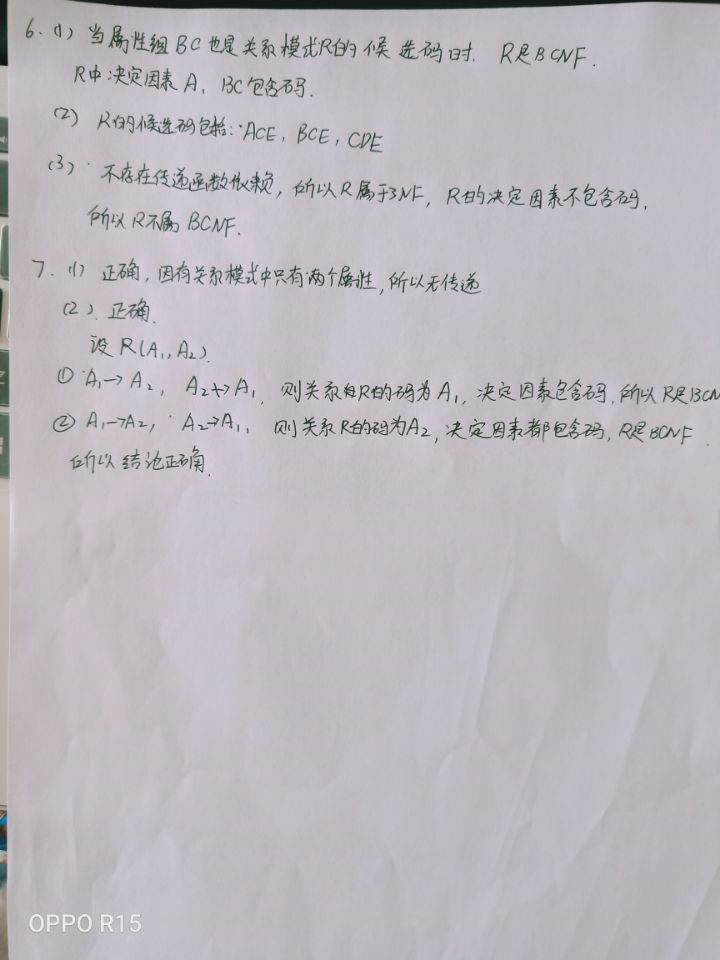 6. (1) 当属性组BC也是关系模式R的候选码时, R是BCNF.
R中决定因素A, BC包含码.
(2) R的候选码包括: ACE, BCE, CDE
(3) 不存在传递函数依赖, 所以R属于3NF, R的决定因素不包含码,
所以R不属BCNF.
7. (1) 正确, 因为关系模式中只有两个属性, 所以无传递
(2) 正确.
设R(A₁, A₂)
① A₁→A₂, A₂↛A₁, 则关系R的码为A₁, 决定因素包含码, 所以R是BCN
② A₁→A₂, A₂→A₁, 则关系R的码为A₂, 决定因素都包含码, R是BCNF
所以结论正确.
OPPO R15